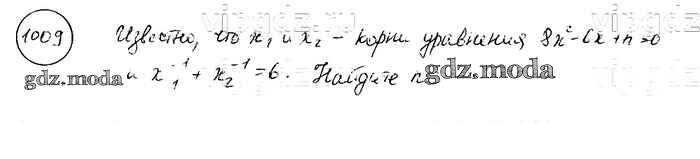 1009 Известно, что x₁ и x₂ - корни уравнения 8x²-6x+n=0
и x₁⁻¹ + x₂⁻¹ = 6. Найдите n.
gdz.moda gdz.moda